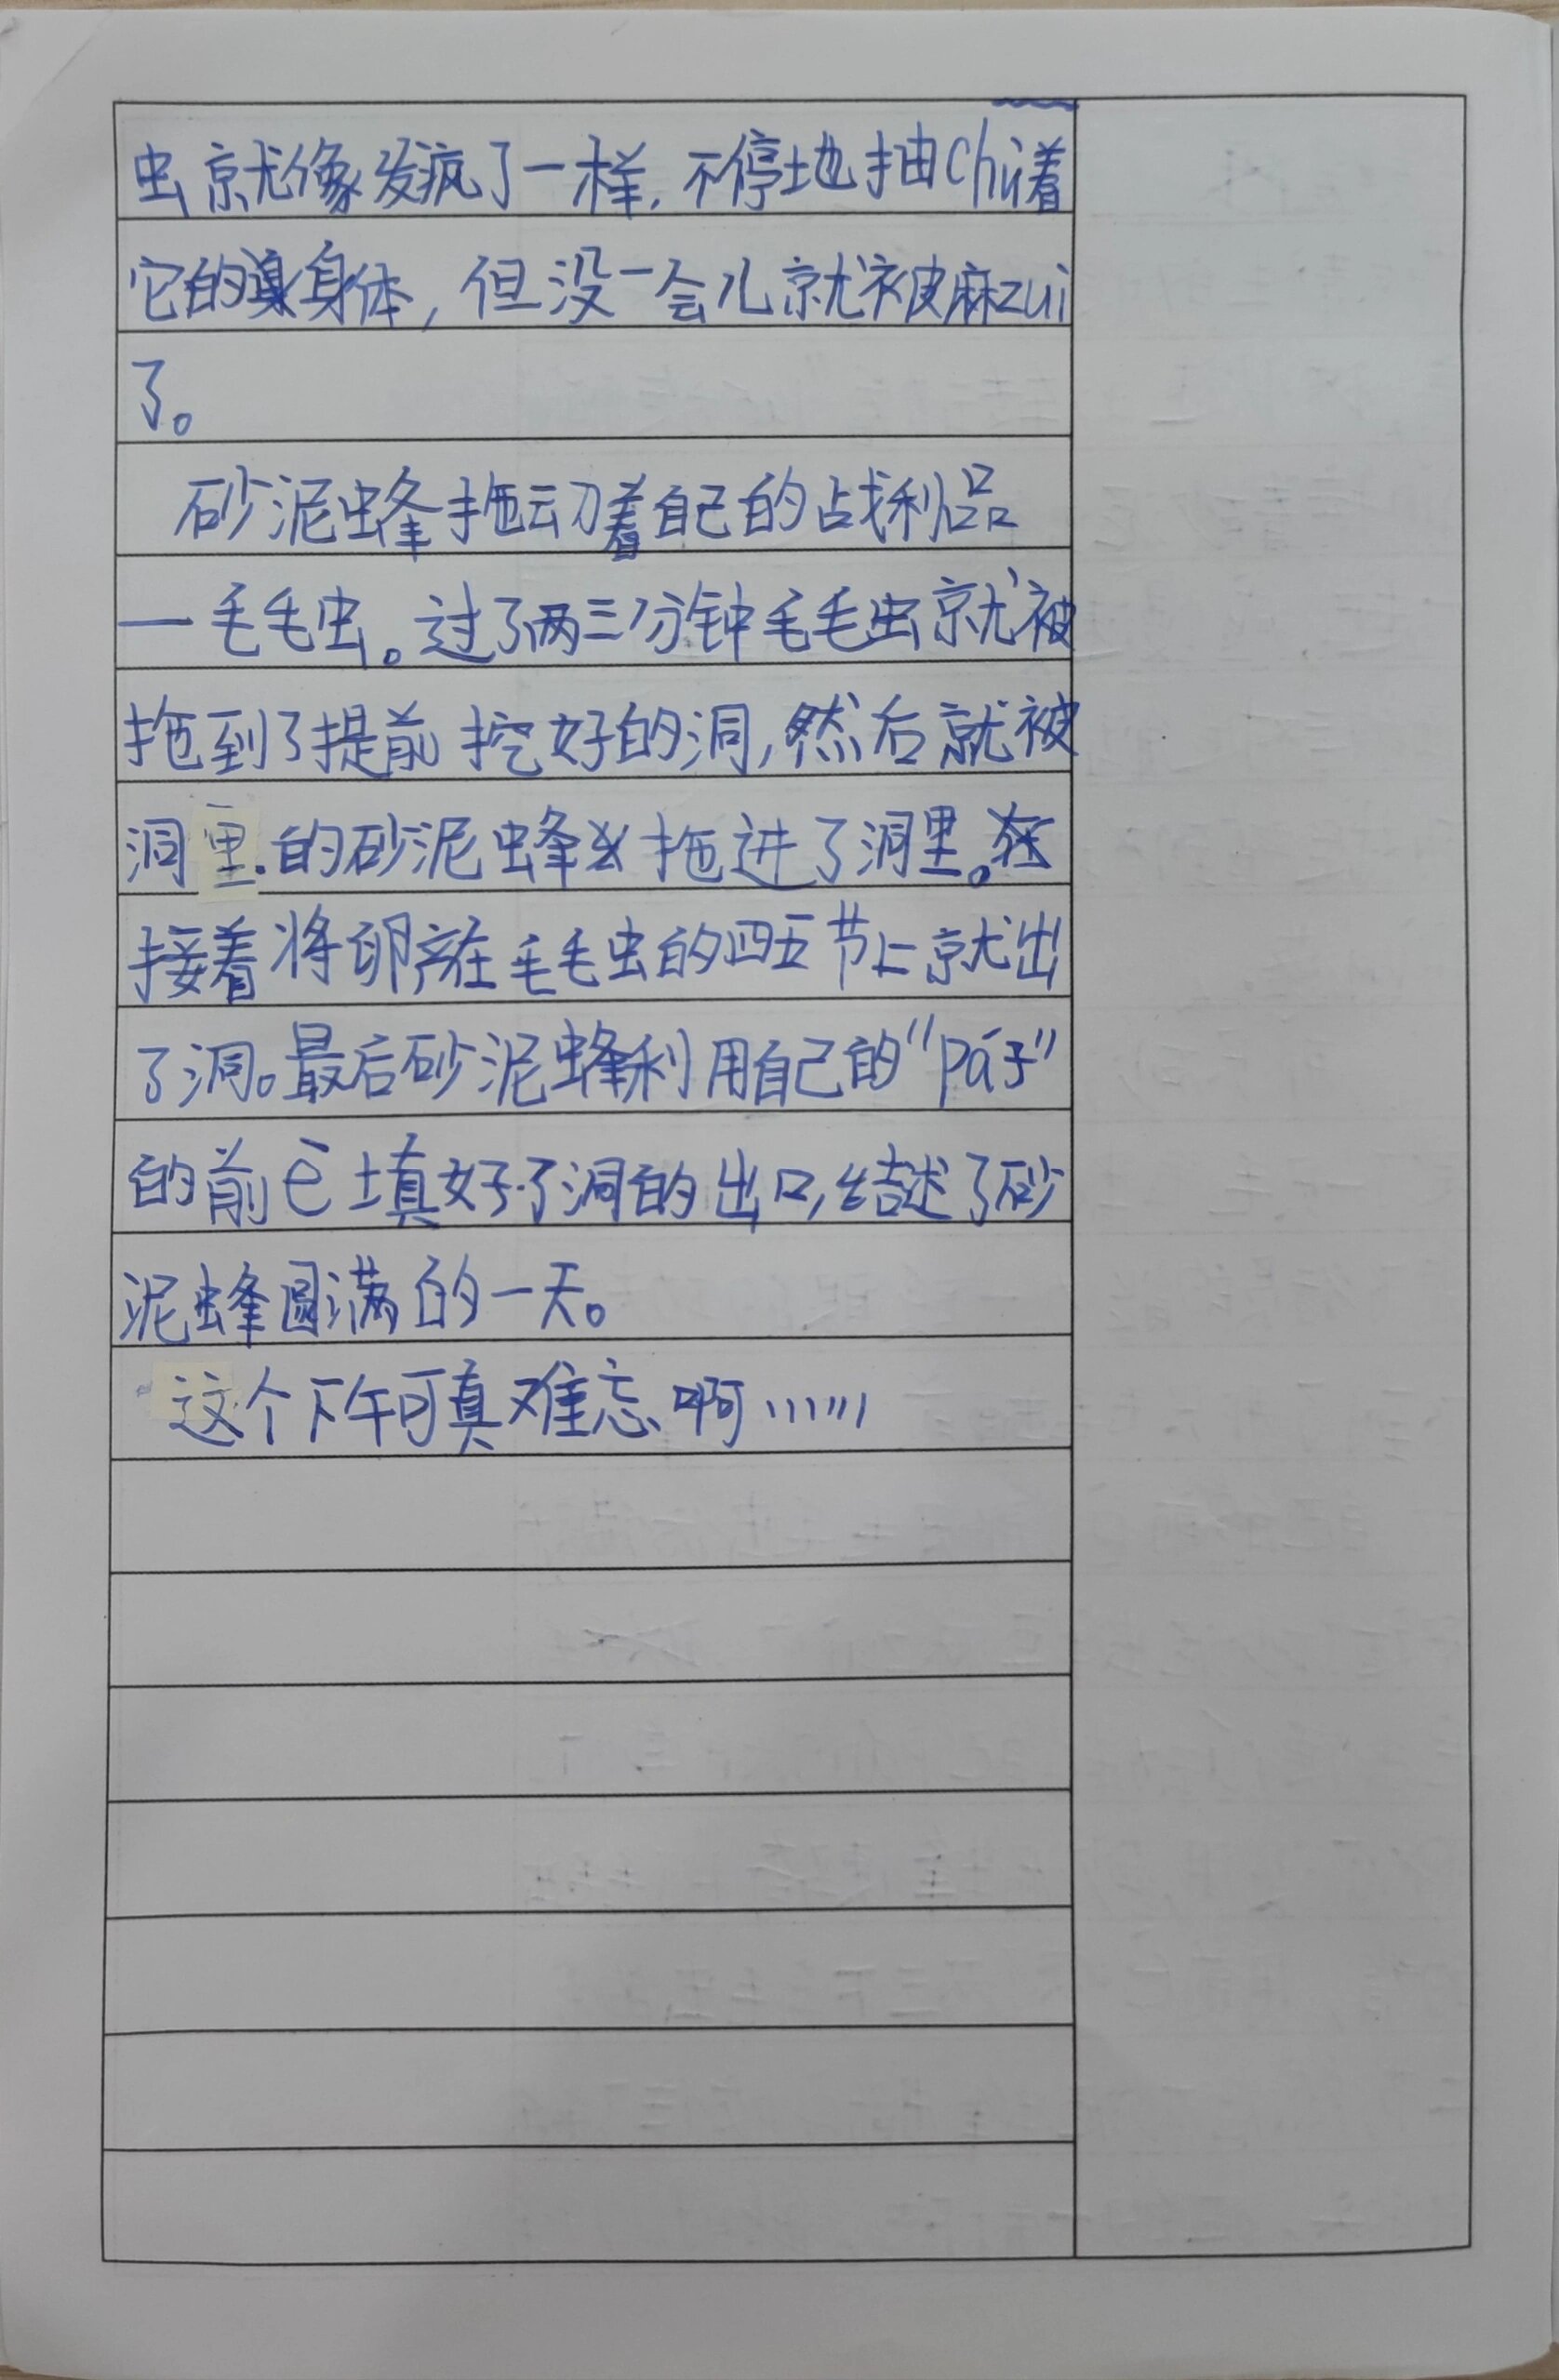 虫就像发疯了一样,不停地抽chù着
它的身体,但没一会儿就被麻zuì
了。
砂泥蜂拖动着自己的战利品
一毛毛虫。过了两三分钟毛毛虫就被
拖到了提前挖好的洞,然后就被
洞里的砂泥蜂拖进了洞里。
接着将卵产在毛毛虫的四五节上就出
了洞。最后砂泥蜂利用自己的“pá子”
的前è填好了洞的出口,结述了砂
泥蜂圆满的一天。
这个下午可真难忘啊……